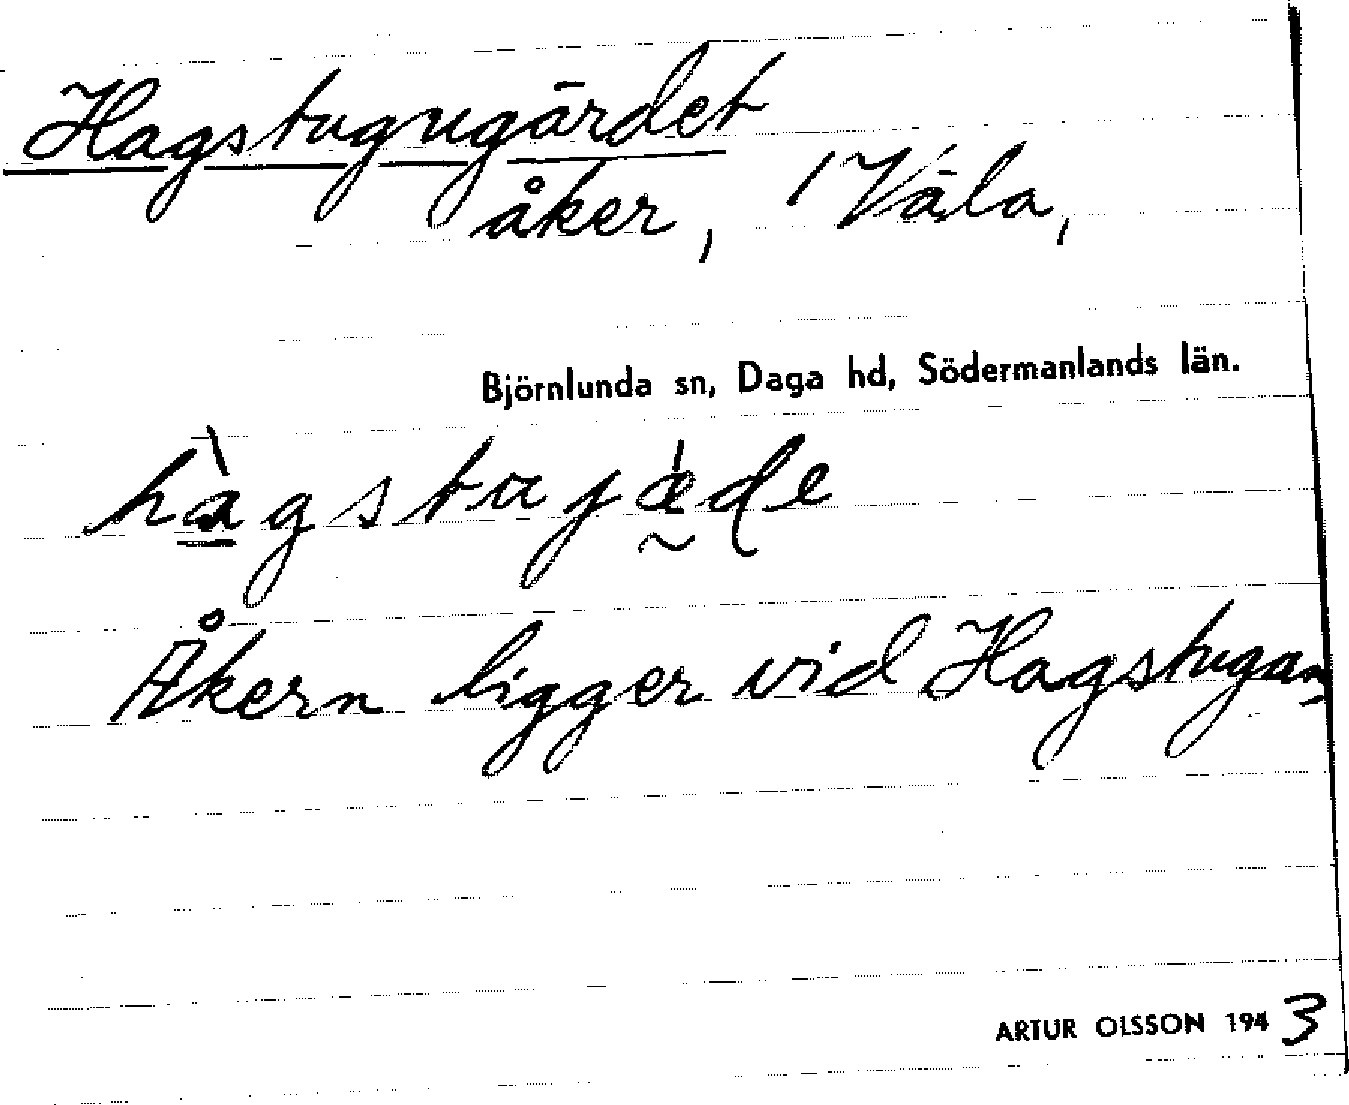 Hagstugugärdet
åker, 1 Väla,
Björnlunda sn, Daga hd, Södermanlands län.
Åkern ligger vid Hagstugan
ARTUR OLSSON 1943